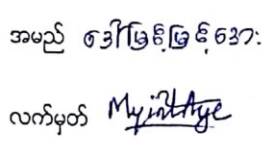 အမည် ဒေါ်မြင့်မြင့်အေး
လက်မှတ် Myint Aye